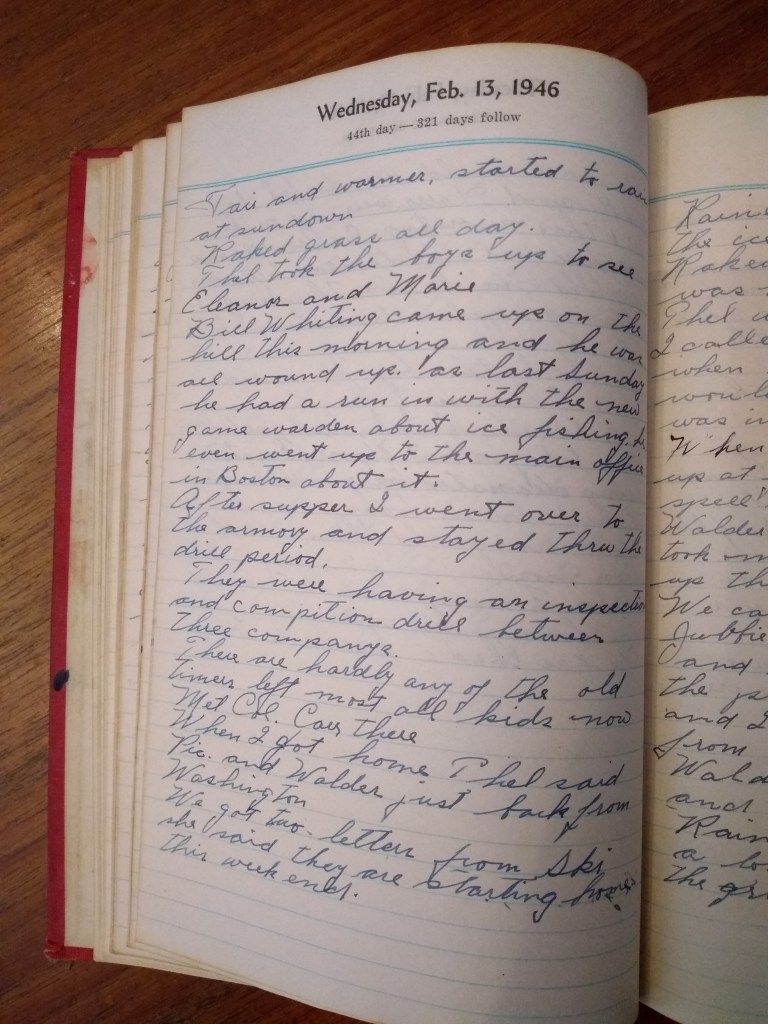 Wednesday, Feb. 13, 1946
44th day — 321 days follow
Fair and warmer, started to rain
at sundown
Raked grass all day.
Phel took the boys up to see
Eleanor and Marie
Bill Whiting came up on the
hill this morning and he was
all wound up. as last Sunday
he had a run in with the new
game warden about ice fishing. he
even went up to the main office
in Boston about it.
After supper I went over to
the armory and stayed thru the
drill period.
They were having an inspection
and compition drill between
three companys.
There are hardly any of the old
timers left most all kids now
Met Col. Carr there
When I got home Phel said
Pic. and Walder just back from
Washington
We got two letters from Ski
she said they are starting home
this week end.
Raine
the ice
Raked
was
Phel
I calle
when
would
was in
When
up at
spell
Walder
took
up th
We ca
and
the
and I
from
Wald
and
Rain
a
the gr